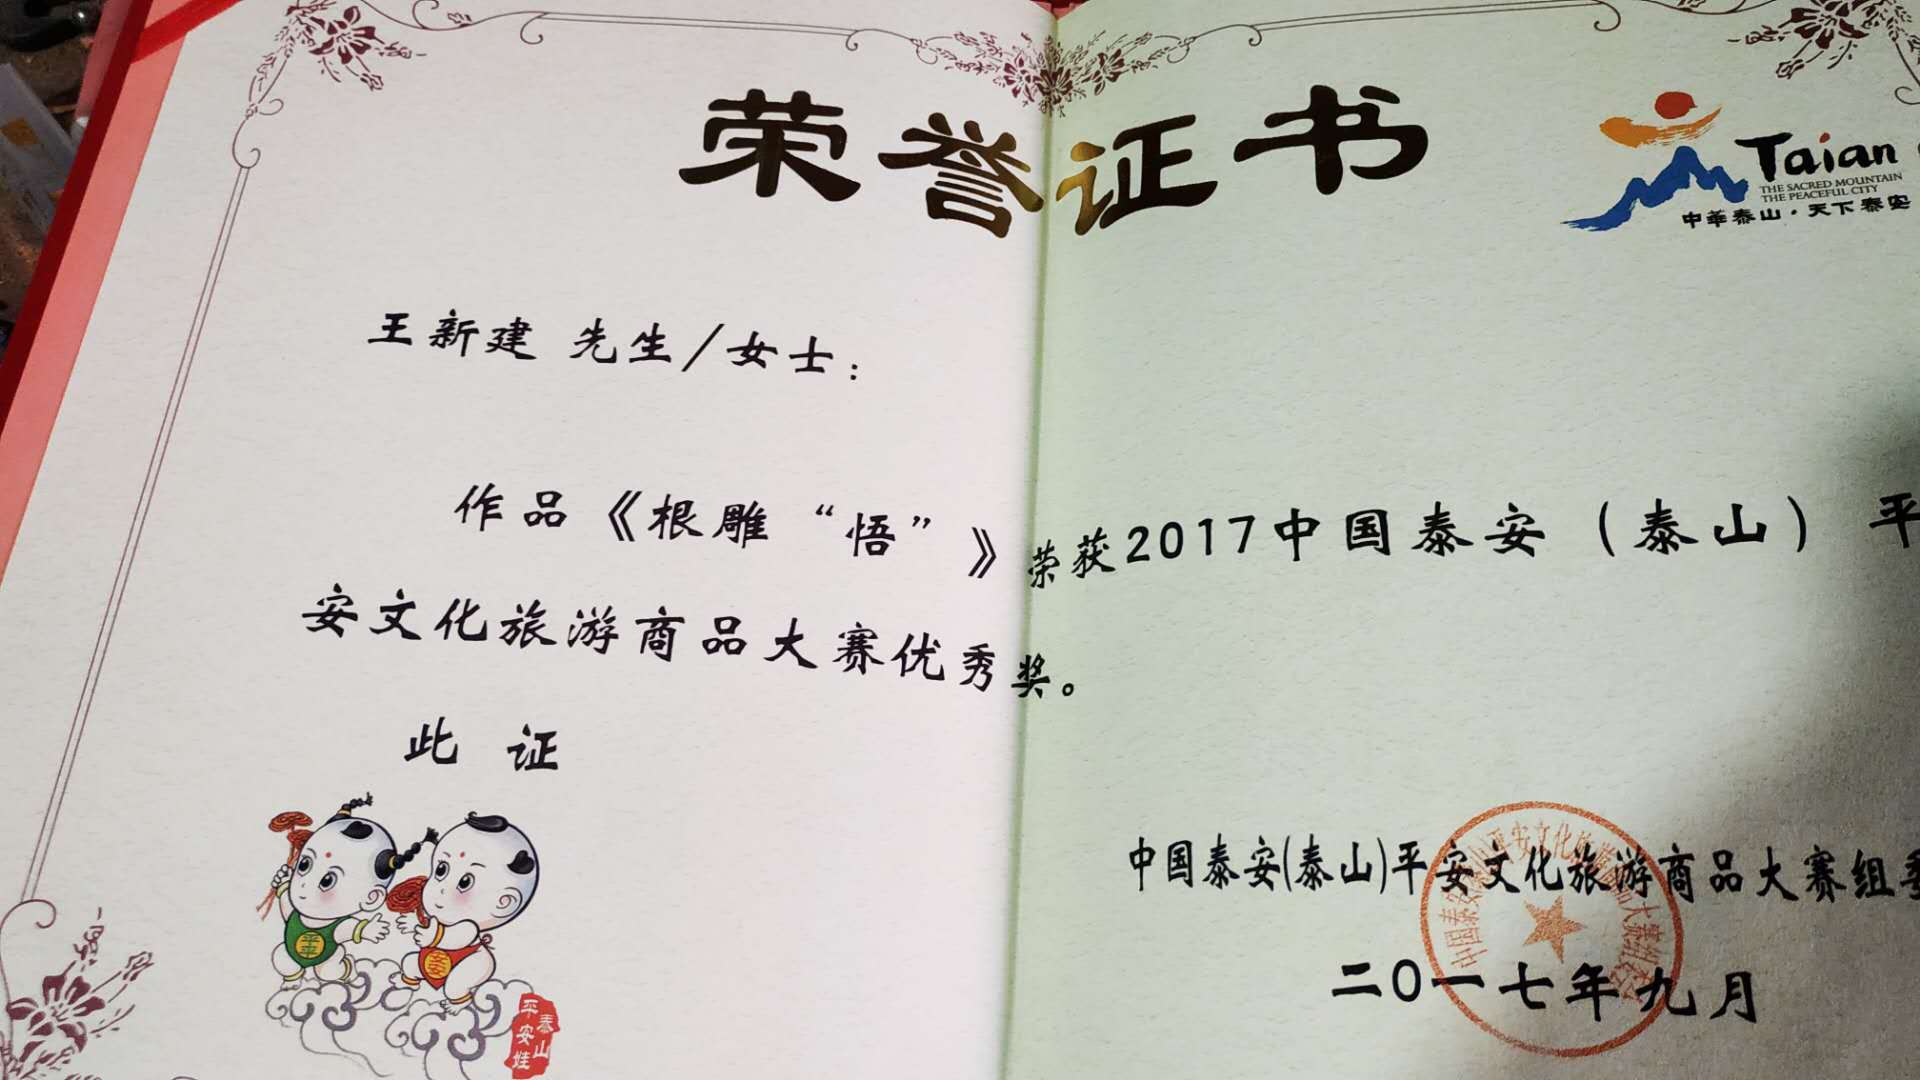 荣誉证书
Taian
THE SACRED MOUNTAIN
THE PEACEFUL CITY
中华泰山·天下泰安
王新建 先生/女士：
作品《根雕“悟”》荣获2017中国泰安（泰山）平
安文化旅游商品大赛优秀奖。
此 证
平平
安安
泰山
平安娃
中国泰安(泰山)平安文化旅游商品大赛组委
二〇一七年九月